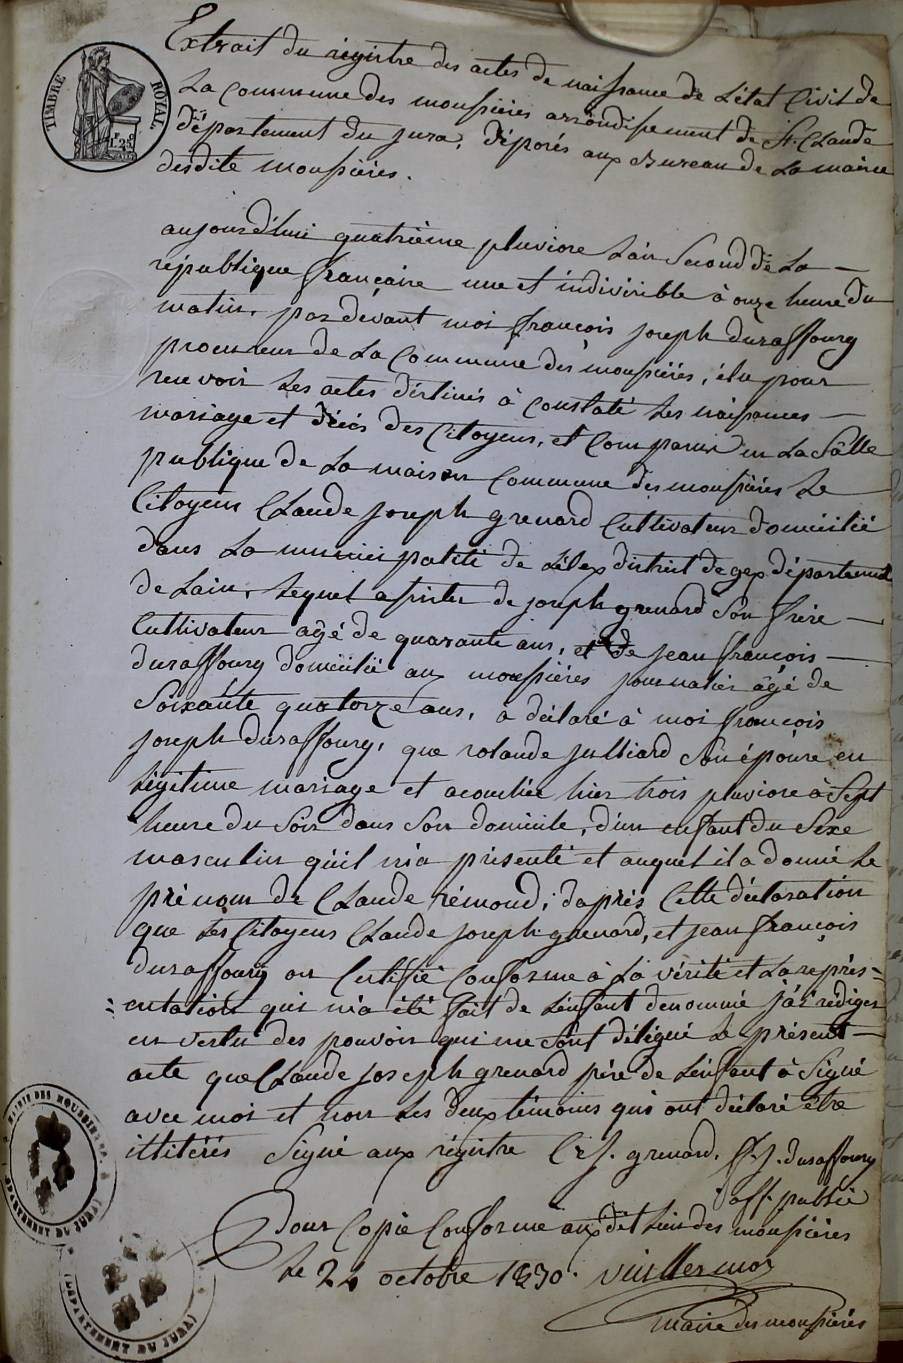 TIMBRE ROYAL
1 F 25
Extrait du régistre des actes de naissance de L'état Civil de
La Commune des moussieres arrondissement de St. Claude
département du jura, déposés aux Bureau de La mairie
desdite moussières.
aujourd'hui quatrième pluviose L'an Second de La —
république françaire une et indivisible à onze heure du
matin, par dévant moi françois joseph duraffourg
procureur de La Commune des moussières, élu pour
recevoir Les actes déstinés à Constaté Les naissances —
mariage et décés des Citoyens, et Comparus en La Salle
publique de La maison Commune des moussières Le
Citoyens Claude joseph grenard Cultivateur domicilié
dans La municipalité de Lélex district de gex département
de Lain, Lequel assister de joseph grenard Son frère —
Cultivateur agé de quarante ans, et de jean françois —
duraffourg domicilié aux moussières journalier âgé de
Soixante quatorze ans, a déclaré à moi françois
joseph duraffourg, que rolande julliard Son épouse en
Légitime mariage et acouchée hier trois pluviose à Sept
heure du Soir dans Son domicile, d'un enfant du Sexe
masculin qu'il m'a présenté et auquel il a donné Le
prénom de Claude rémond; daprès Cette déclaration
que Les Citoyens Claude joseph grenard, et jean françois
duraffourg on Certifié Conforme à La vérité et La représ-
entation qui m'a été fait de L'enfant denommé j'ai rediger
en vertu des pouvoir qui me Sont délégué Le présent —
acte que Claude joseph grenard père de L'enfant à Signé
avec moi et non Les deux témoins qui ont déclaré être
illitérés Signé aux régistre C. J. grenard. f. J. duraffourg
off. public
Pour Copie Conforme aux dit Lieu des moussières
Le 24 octobre 1830. Vuillermoz
Maire des moussières
MAIRIE DES MOUSSIERES
DEPARTEMENT DU JURA
(DEPARTEMENT DU JURA)